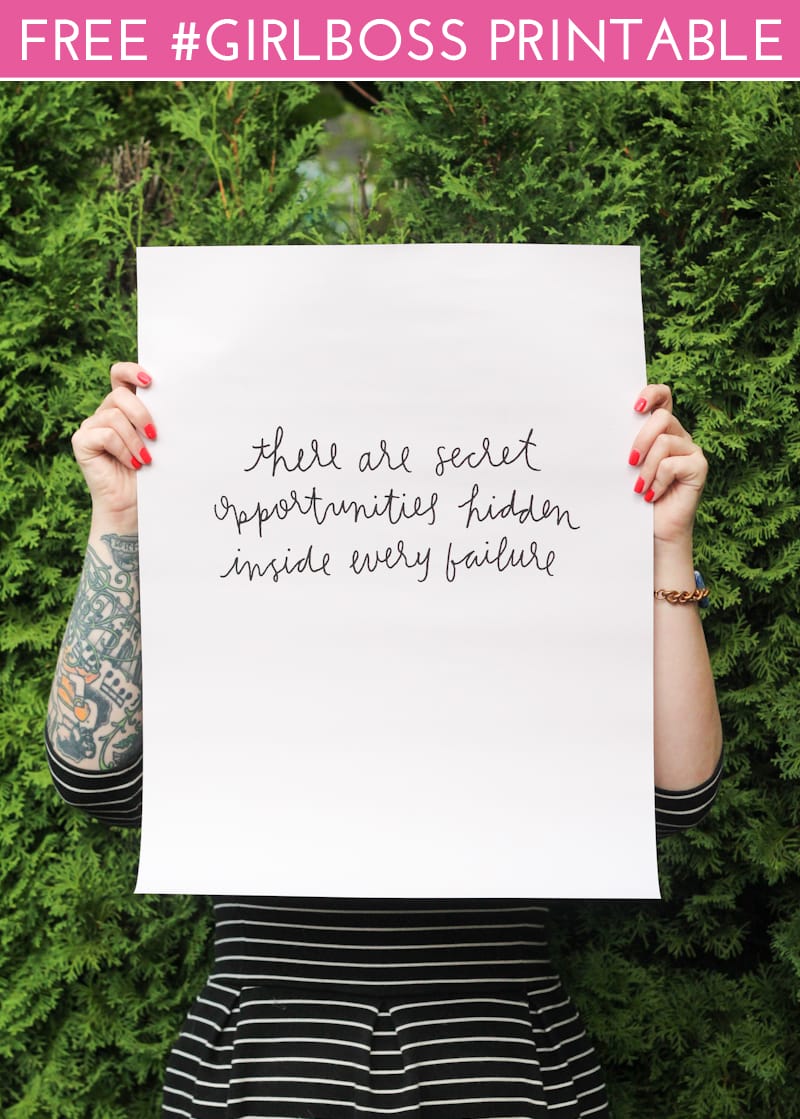 FREE #GIRLBOSS PRINTABLE
there are secret
opportunities hidden
inside every failure